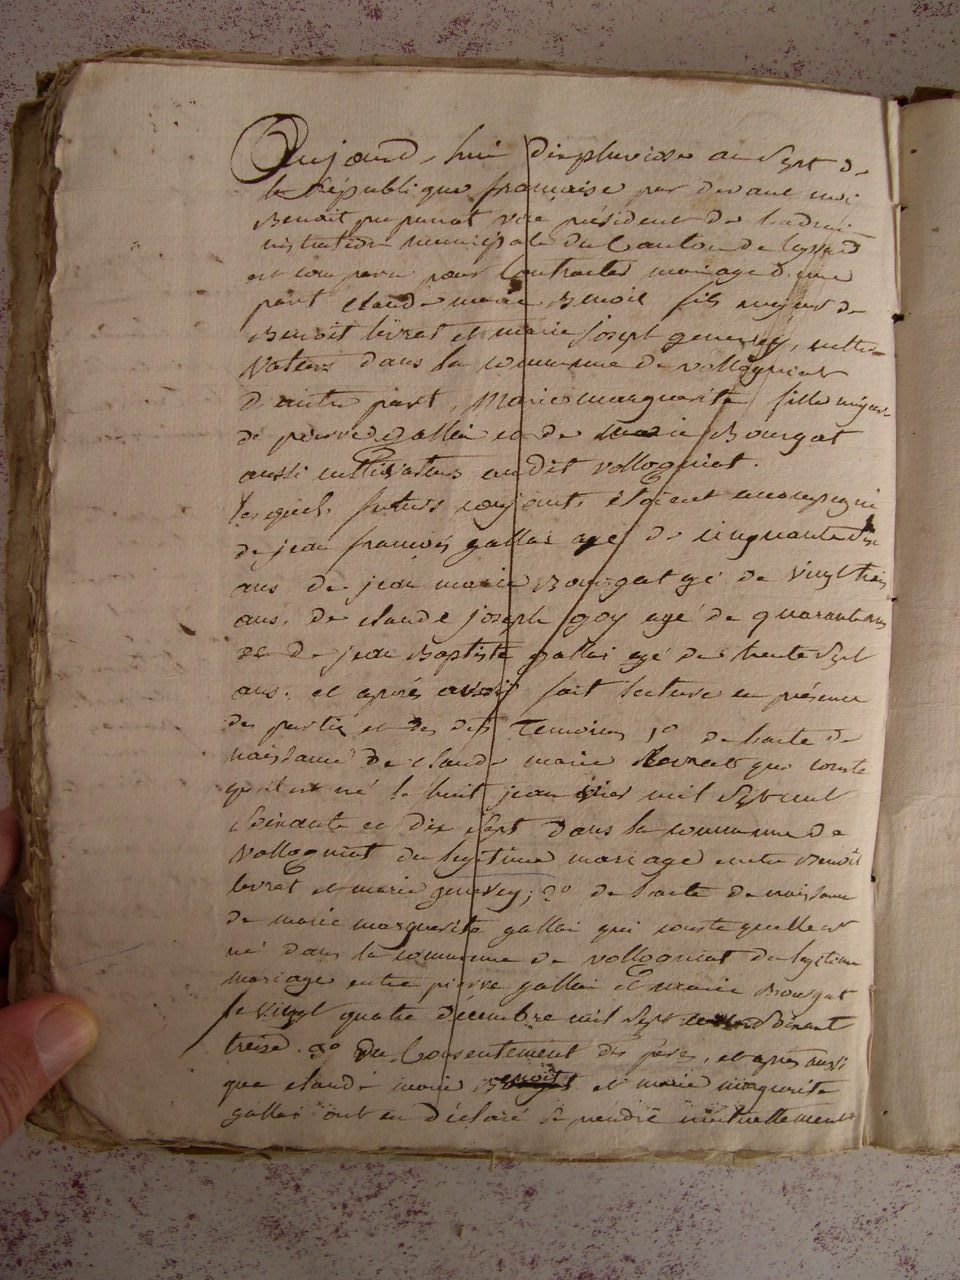 Aujourd'hui dix pluviose an Sept de
la République française par devant moi
Benoit vice président de l'admi-
nistration municipale du Canton de
est comparu pour Contracter mariage d'une
part claude marie Benoit fils majeur de
Benoit livrat et marie Joseph genevey, culti-
vateurs dans la commune de vollogniat
d'autre part, Marie marguerite fille majeure
de pierre gallai et de marie Bourgat
aussi cultivateurs audit vollogniat.
lesquels futurs conjoints étoient accompagné
de jean françois gallai agé de cinquante
ans de jean marie Bourgat agé de vingt trois
ans, de claude joseph goy agé de quarante ans
de jean Baptiste gallai agé de trente Sept
ans. et après avoir fait lecture en présence
des partie et des dits Temoins 1° de l'acte de
naissance de claude marie livrat qui conste
qu'il est né le huit janvier mil Sept cent
Soixante et dix Sept dans la commune de
Vollogniat du legitime mariage entre Benoit
livrat et marie genevey; 2° de l'acte de naissance
de marie marguerite gallai qui conste quelle est
né dans la commune de vollogniat du legitime
mariage entre pierre gallai et marie Bourgat
le vingt quatre décembre mil Sept Soixante
treize. 3° du Consentement des pères, et après aussi
que claude marie Benoit et marie margurite
gallai ont eu déclaré Se prendre mutuellement